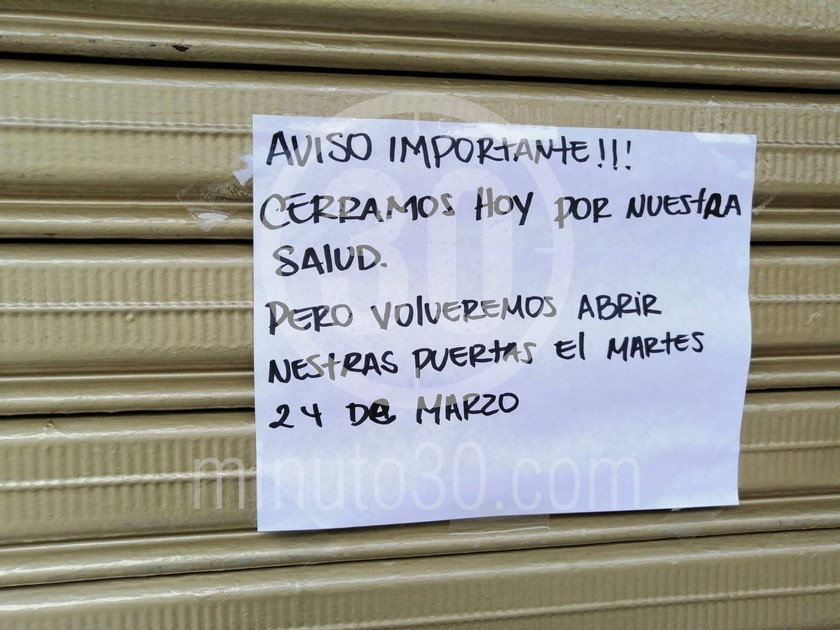 AVISO IMPORTANTE!!!
CERRAMOS HOY POR NUESTRA
SALUD.
PERO VOLVEREMOS ABRIR
NESTRAS PUERTAS El MARTES
24 DE MARZO
30
minuto30.com